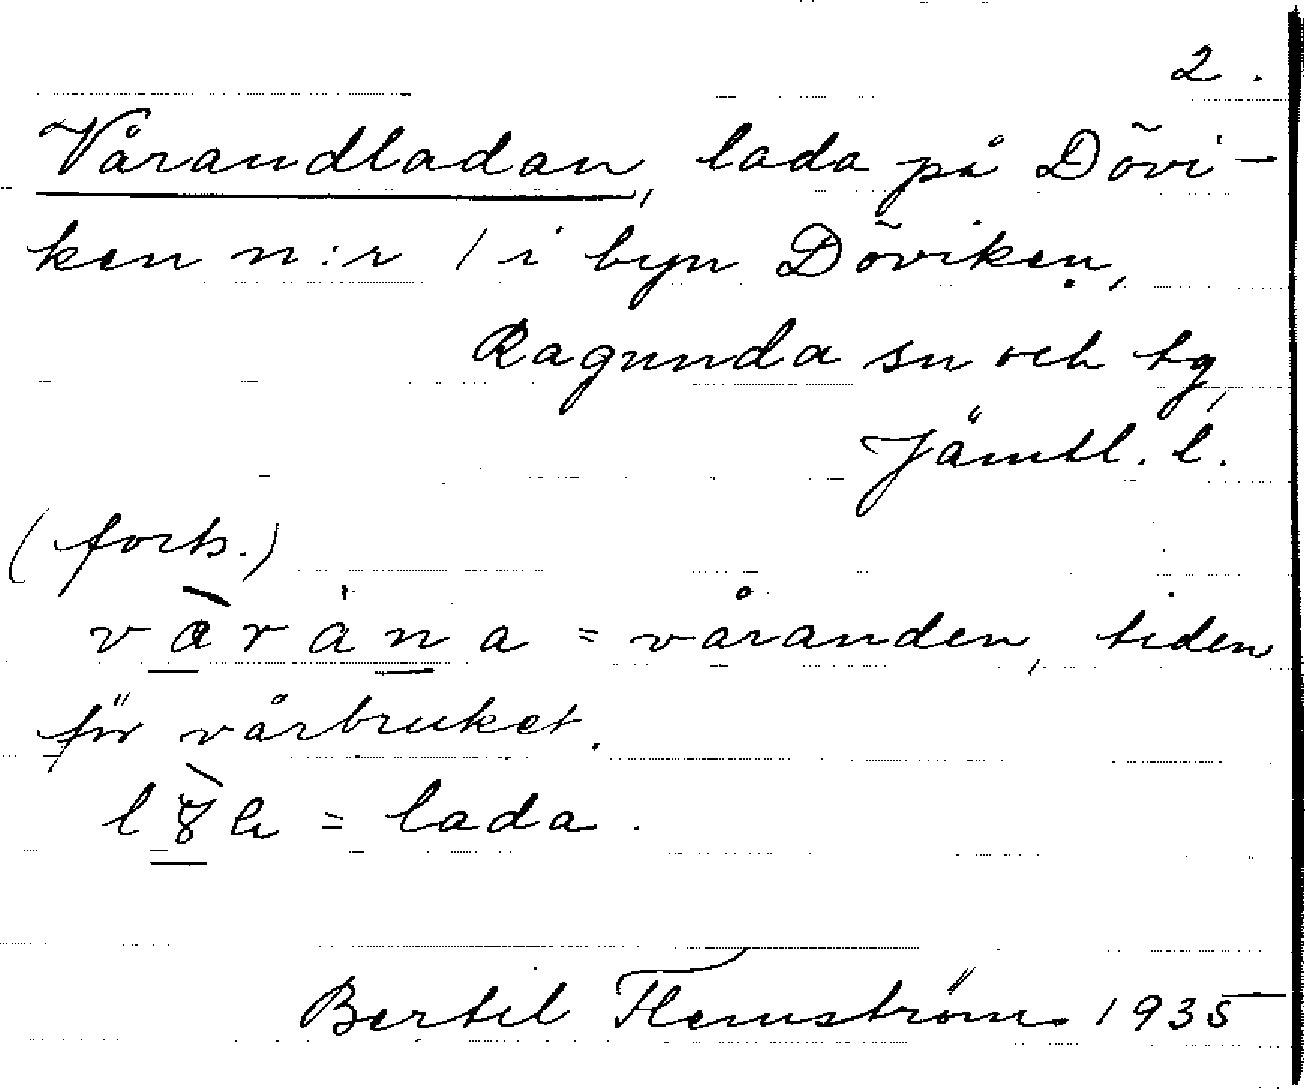 2.
Vårandladan, lada på Dövi-
ken n:r 1 i byn Döviken,
Ragunda sn och tg,
Jämtl. l.
(forts.)
= våranden, tiden
för vårbruket.
= lada.
Bertil Flemström 1935